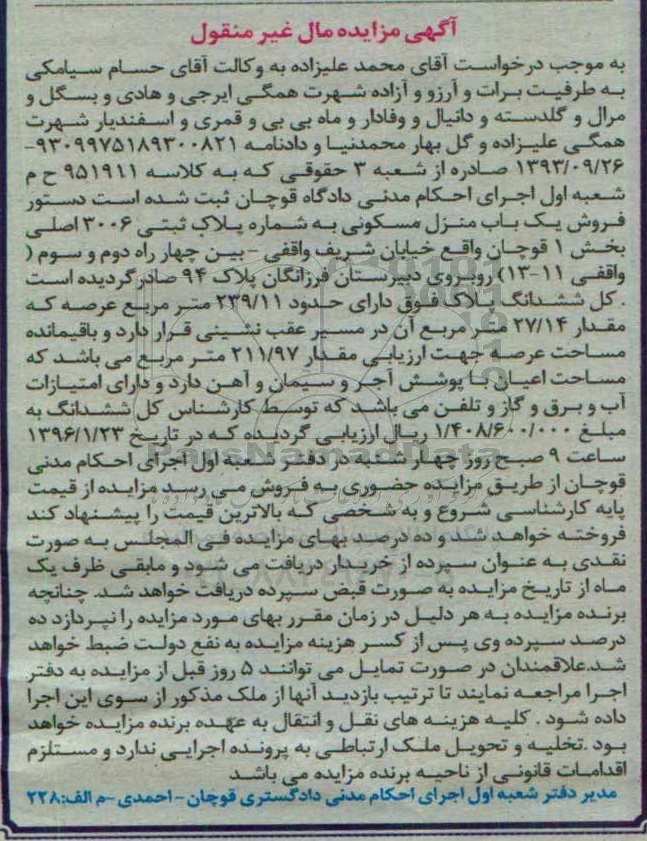 آگهی مزایده مال غیر منقول
به موجب درخواست آقای محمد علیزاده به وکالت آقای حسام سیامکی
به طرفیت برات و آرزو و آزاده شهرت همگی ایرجی و هادی و بسگل و
مرال و گلدسته و دانیال و وفادار و ماه بی بی و قمری و اسفندیار شهرت
همگی علیزاده و گل بهار محمدنیا و دادنامه ۹۳۰۹۹۷۵۱۸۹۳۰۰۸۲۱-
۱۳۹۳/۰۹/۲۶ صادره از شعبه ۳ حقوقی که به کلاسه ۹۵۱۹۱۱ ح م
شعبه اول اجرای احکام مدنی دادگاه قوچان ثبت شده است دستور
فروش یک باب منزل مسکونی به شماره پلاک ثبتی ۳۰۰۶ اصلی
بخش ۱ قوچان واقع خیابان شریف واقفی - بین چهار راه دوم و سوم (
واقفی ۱۱-۱۳) روبروی دبیرستان فرزانگان پلاک ۹۴ صادر گردیده است
. کل ششدانگ پلاک فوق دارای حدود ۲۳۹/۱۱ متر مربع عرصه که
مقدار ۲۷/۱۴ متر مربع آن در مسیر عقب نشینی قرار دارد و باقیمانده
مساحت عرصه جهت ارزیابی مقدار ۲۱۱/۹۷ متر مربع می باشد که
مساحت اعیان با پوشش آجر و سیمان و آهن دارد و دارای امتیازات
آب و برق و گاز و تلفن می باشد که توسط کارشناس کل ششدانگ به
مبلغ ۱/۴۰۸/۶۰۰/۰۰۰ ریال ارزیابی گردیده که در تاریخ ۱۳۹۶/۱/۲۳
ساعت ۹ صبح روز چهار شنبه در دفتر شعبه اول اجرای احکام مدنی
قوچان از طریق مزایده حضوری به فروش می رسد مزایده از قیمت
پایه کارشناسی شروع و به شخصی که بالاترین قیمت را پیشنهاد کند
فروخته خواهد شد و ده درصد بهای مزایده فی المجلس به صورت
نقدی به عنوان سپرده از خریدار دریافت می شود و مابقی ظرف یک
ماه از تاریخ مزایده به صورت قبض سپرده دریافت خواهد شد. چنانچه
برنده مزایده به هر دلیل در زمان مقرر بهای مورد مزایده را نپردازد ده
درصد سپرده وی پس از کسر هزینه مزایده به نفع دولت ضبط خواهد
شد.علاقمندان در صورت تمایل می توانند ۵ روز قبل از مزایده به دفتر
اجرا مراجعه نمایند تا ترتیب بازدید آنها از ملک مذکور از سوی این اجرا
داده شود . کلیه هزینه های نقل و انتقال به عهده برنده مزایده خواهد
بود .تخلیه و تحویل ملک ارتباطی به پرونده اجرایی ندارد و مستلزم
اقدامات قانونی از ناحیه برنده مزایده می باشد
مدیر دفتر شعبه اول اجرای احکام مدنی دادگستری قوچان - احمدی -م الف:۲۲۸
ParsNamadData